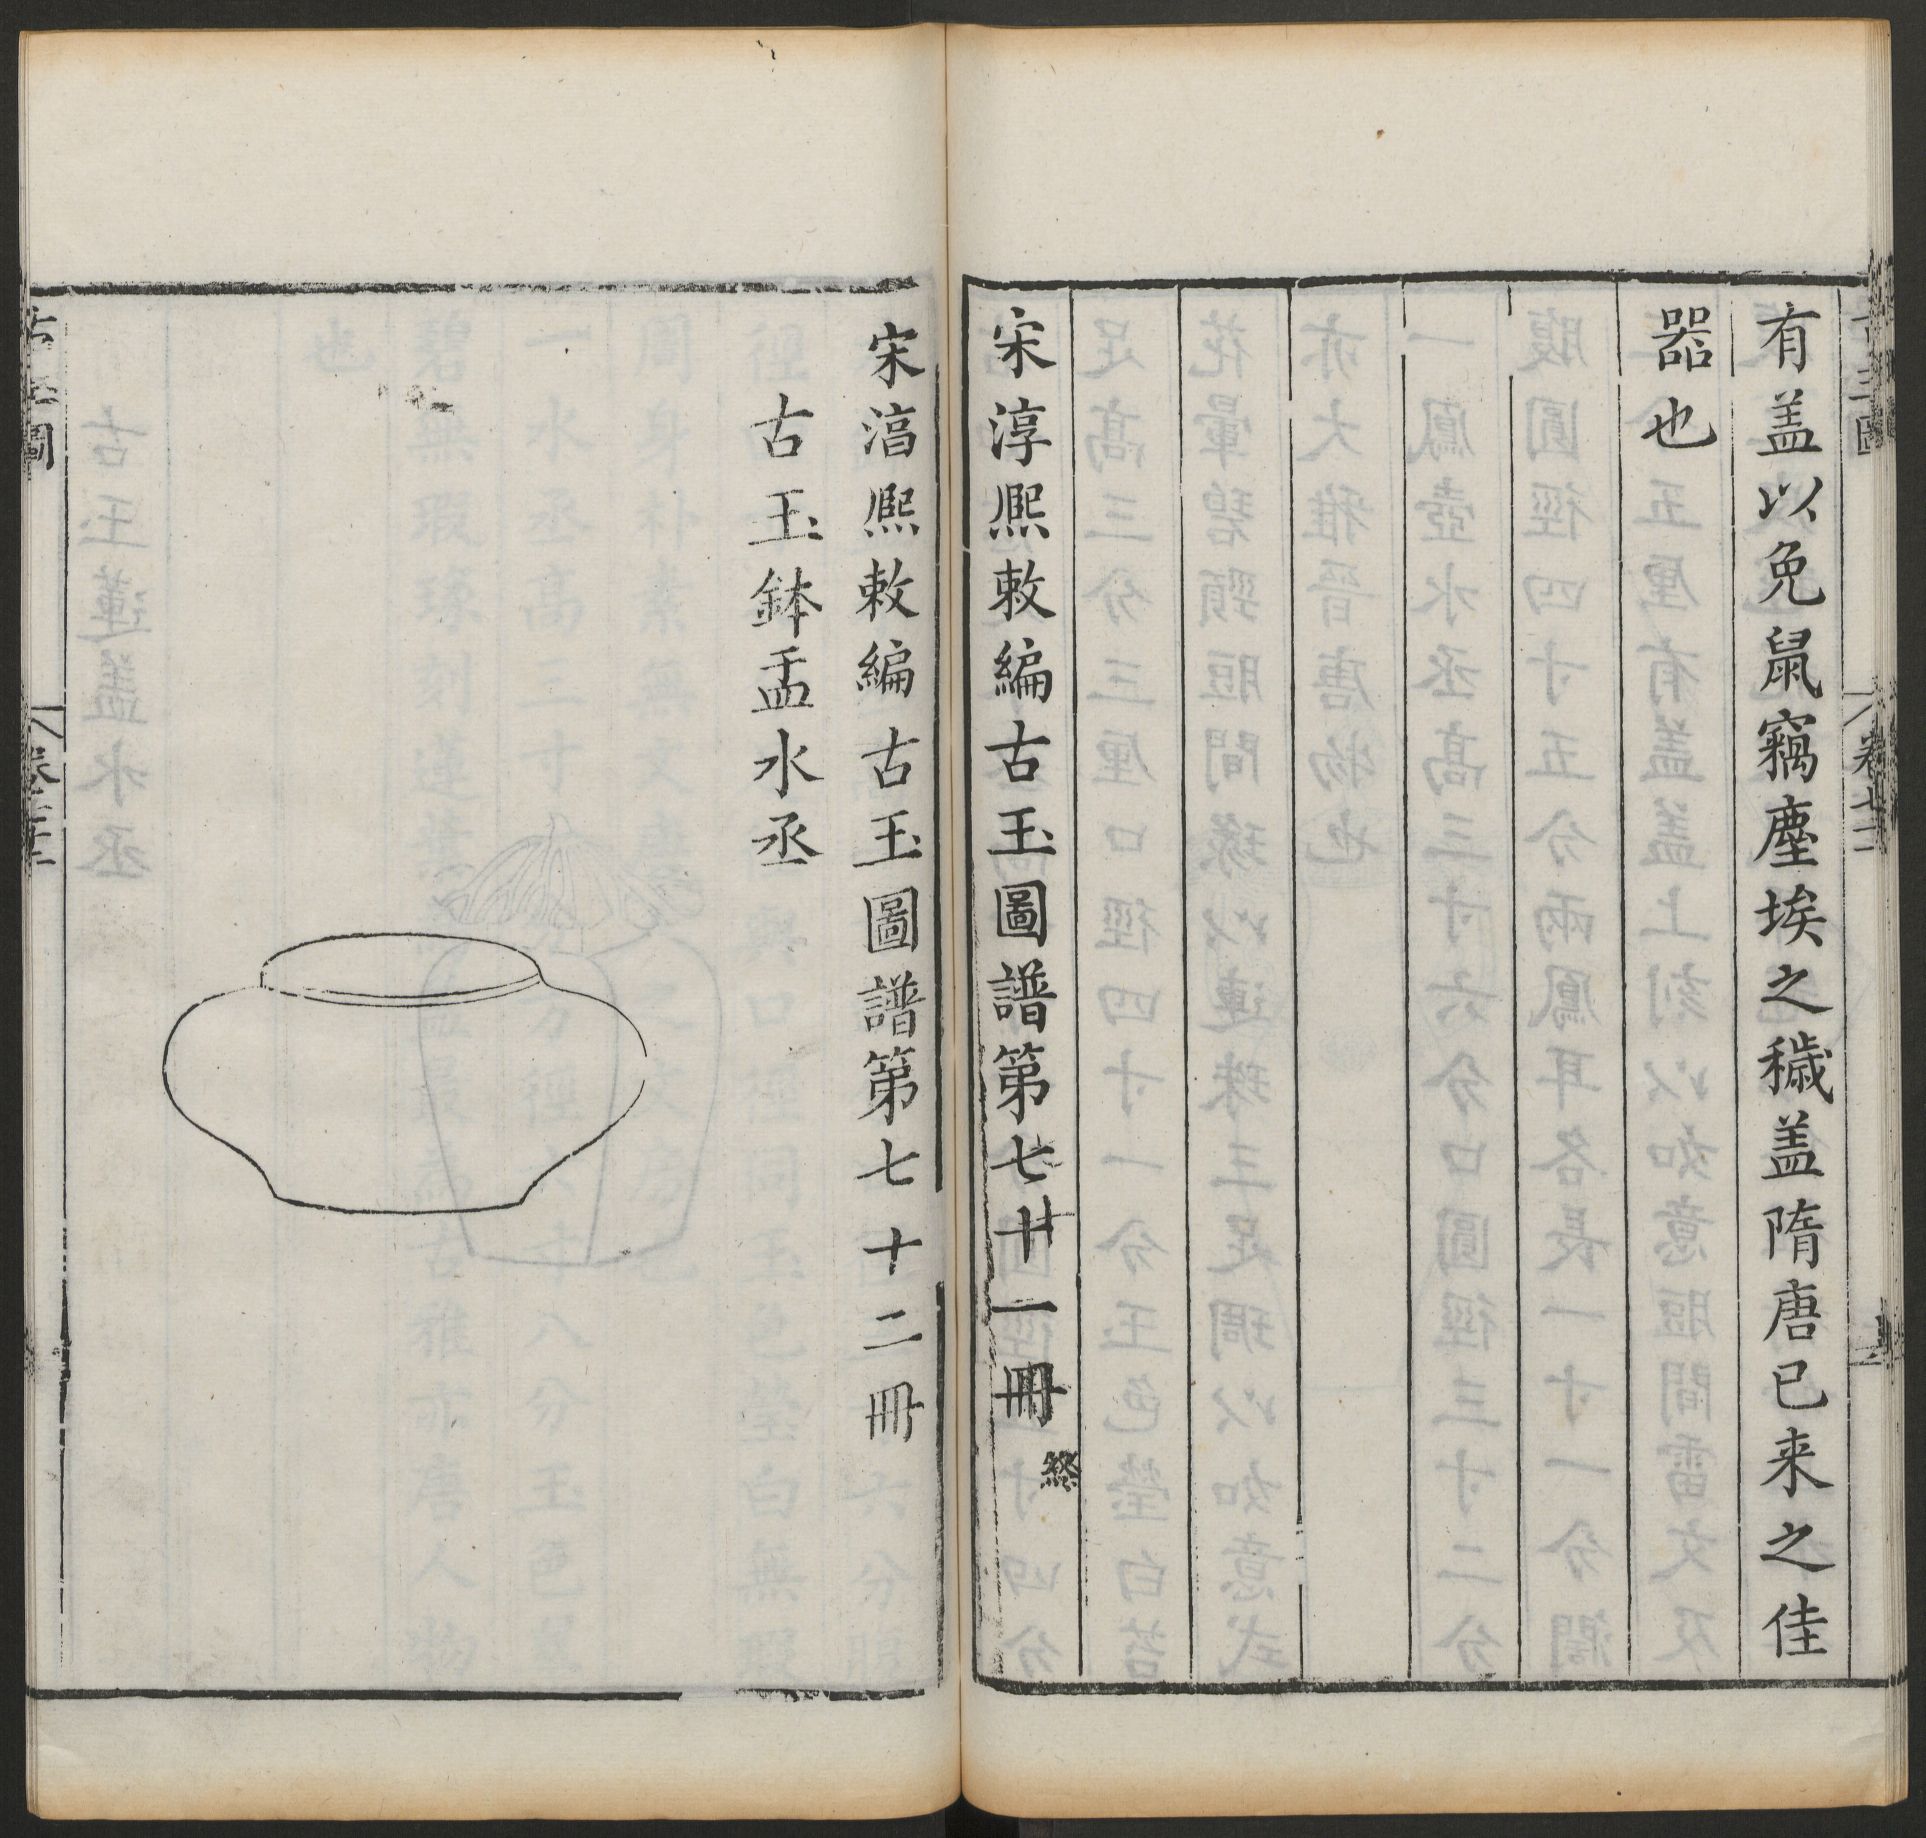 有盖以免鼠竊塵埃之穢盖隋唐已来之佳
器也
宋淳熈敕編古玉圖譜第七十一冊終
宋湻熈敕編古玉圖譜第七十二冊
古玉鉢盂水丞